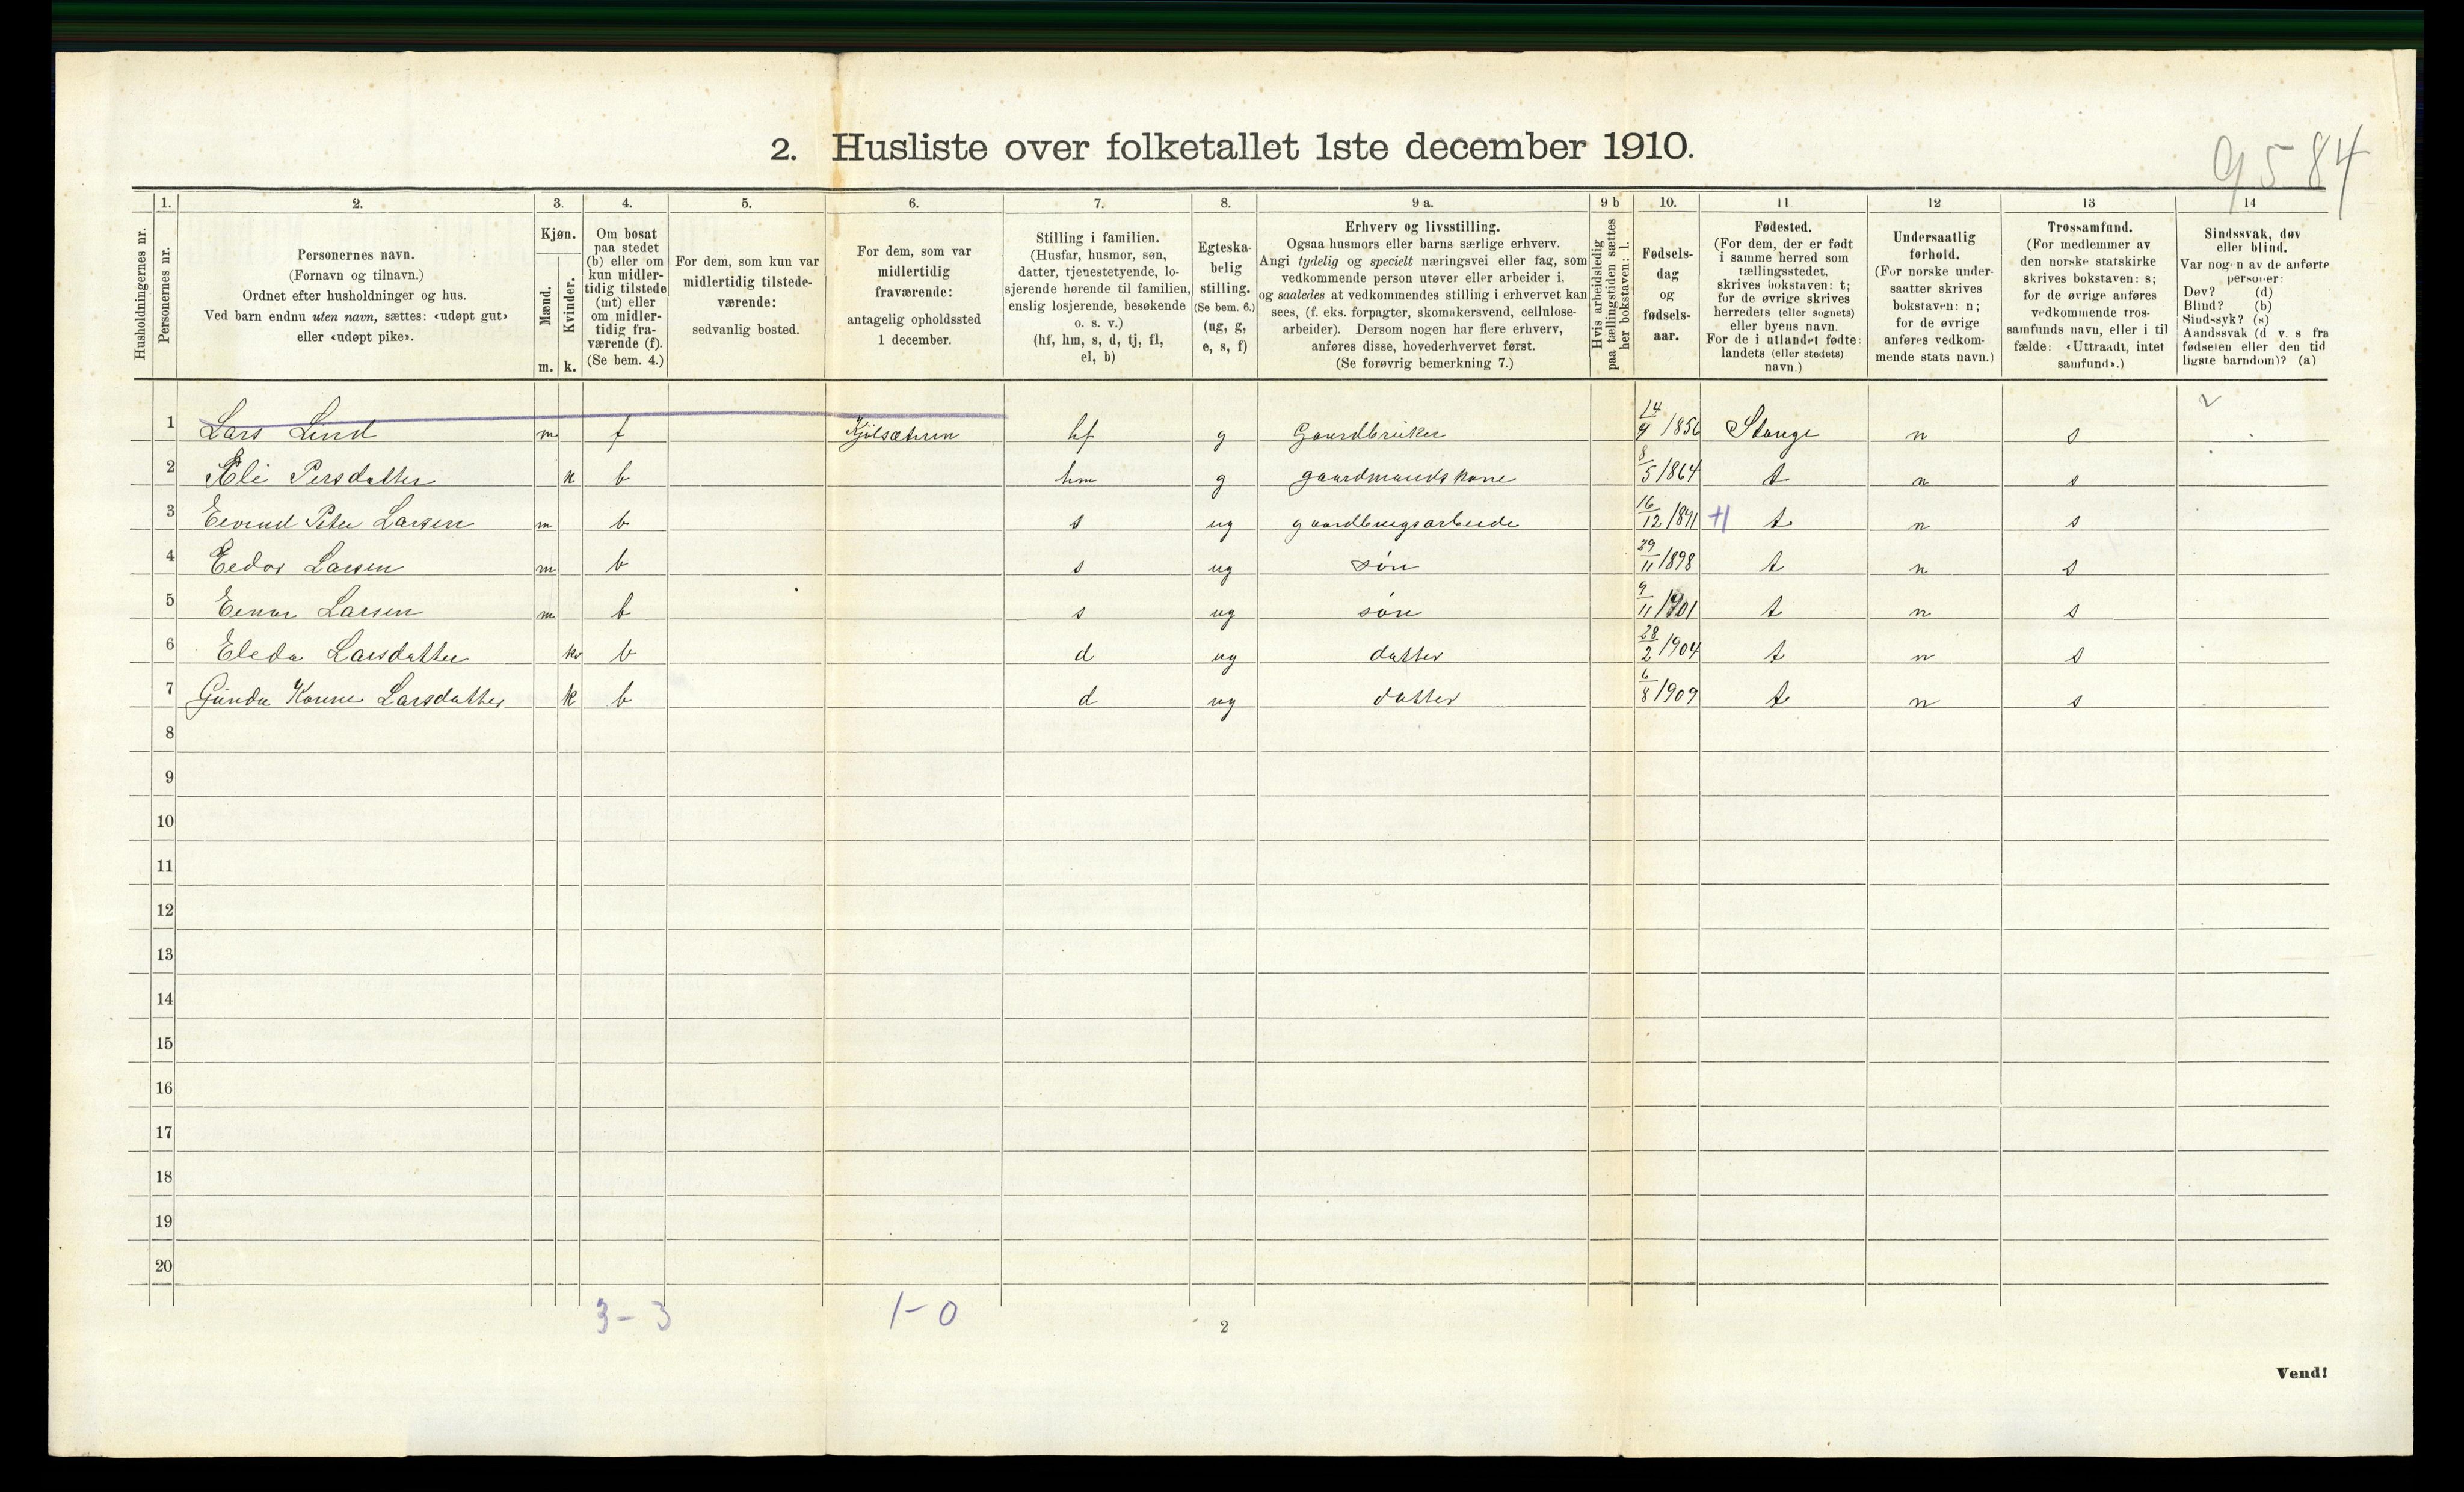 9584
2. Husliste over folketallet 1ste december 1910.
Husholdningernes nr.
1.
Personernes nr.
2.
Personernes navn.
(Fornavn og tilnavn.)
Ordnet efter husholdninger og hus.
Ved barn endnu uten navn, sættes: «udøpt gut»
eller «udøpt pike».
3.
Kjøn.
Mænd.
Kvinder.
m. k.
4.
Om bosat
paa stedet
(b) eller om
kun midler-
tidig tilstede
(mt) eller
om midler-
tidig fra-
værende (f).
(Se bem. 4.)
5.
For dem, som kun var
midlertidig tilstede-
værende:
sedvanlig bosted.
6.
For dem, som var
midlertidig
fraværende:
antagelig opholdssted
1 december.
7.
Stilling i familien.
(Husfar, husmor, søn,
datter, tjenestetyende, lo-
sjerende hørende til familien,
enslig losjerende, besøkende
o. s. v.)
(hf, hm, s, d, tj, fl,
el, b)
8.
Egteska-
belig
stilling.
(Se bem. 6.)
(ug, g,
e, s, f)
9 a.
Erhverv og livsstilling.
Ogsaa husmors eller barns særlige erhverv.
Angi tydelig og specielt næringsvei eller fag, som
vedkommende person utøver eller arbeider i,
og saaledes at vedkommendes stilling i erhvervet kan
sees, (f. eks. forpagter, skomakersvend, cellulose-
arbeider). Dersom nogen har flere erhverv,
anføres disse, hovederhvervet først.
(Se forøvrig bemerkning 7.)
9 b
Hvis arbeidsledig
paa tællingstiden sættes
her bokstaven: l.
10.
Fødsels-
dag
og
fødsels-
aar.
11
Fødested.
(For dem, der er født
i samme herred som
tællingsstedet,
skrives bokstaven: t;
for de øvrige skrives
herredets (eller sognets)
eller byens navn.
For de i utlandet fødte:
landets (eller stedets)
navn.)
12
Undersaatlig
forhold.
(For norske under-
saatter skrives
bokstaven: n;
for de øvrige
anføres vedkom-
mende stats navn.)
13
Trossamfund.
(For medlemmer av
den norske statskirke
skrives bokstaven: s;
for de øvrige anføres
vedkommende tros-
samfunds navn, eller i til
fælde: «Uttraadt, intet
samfund».)
14
Sindssvak, døv
eller blind.
Var nogen av de anførte
personer:
Døv? (d)
Blind? (b)
Sindssyk? (s)
Aandssvak (d v. s fra
fødselen eller den tid
ligste barndom)? (a)
1 Lars Lind m f Kjølsæteren hf g Gaardbruker 14/4 1856 Stange n s
2 Eli Persdatter k b hm g gaardmandskone 8/5 1864 t n s
3 Eivind Peter Larsen m b s ug gaardbrugsarbeide 16/12 1891 t n s
4 Eedor Larsen m b s ug søn 29/11 1898 t n s
5 Einar Larsen m b s ug søn 9/11 1901 t n s
6 Eleda Larsdatter kv b d ug datter 28/2 1904 t n s
7 Gunda Karine Larsdatter k b d ug datter 6/8 1909 t n s
8
9
10
11
12
13
14
15
16
17
18
19
20
3-3
1-0
2
Vend!